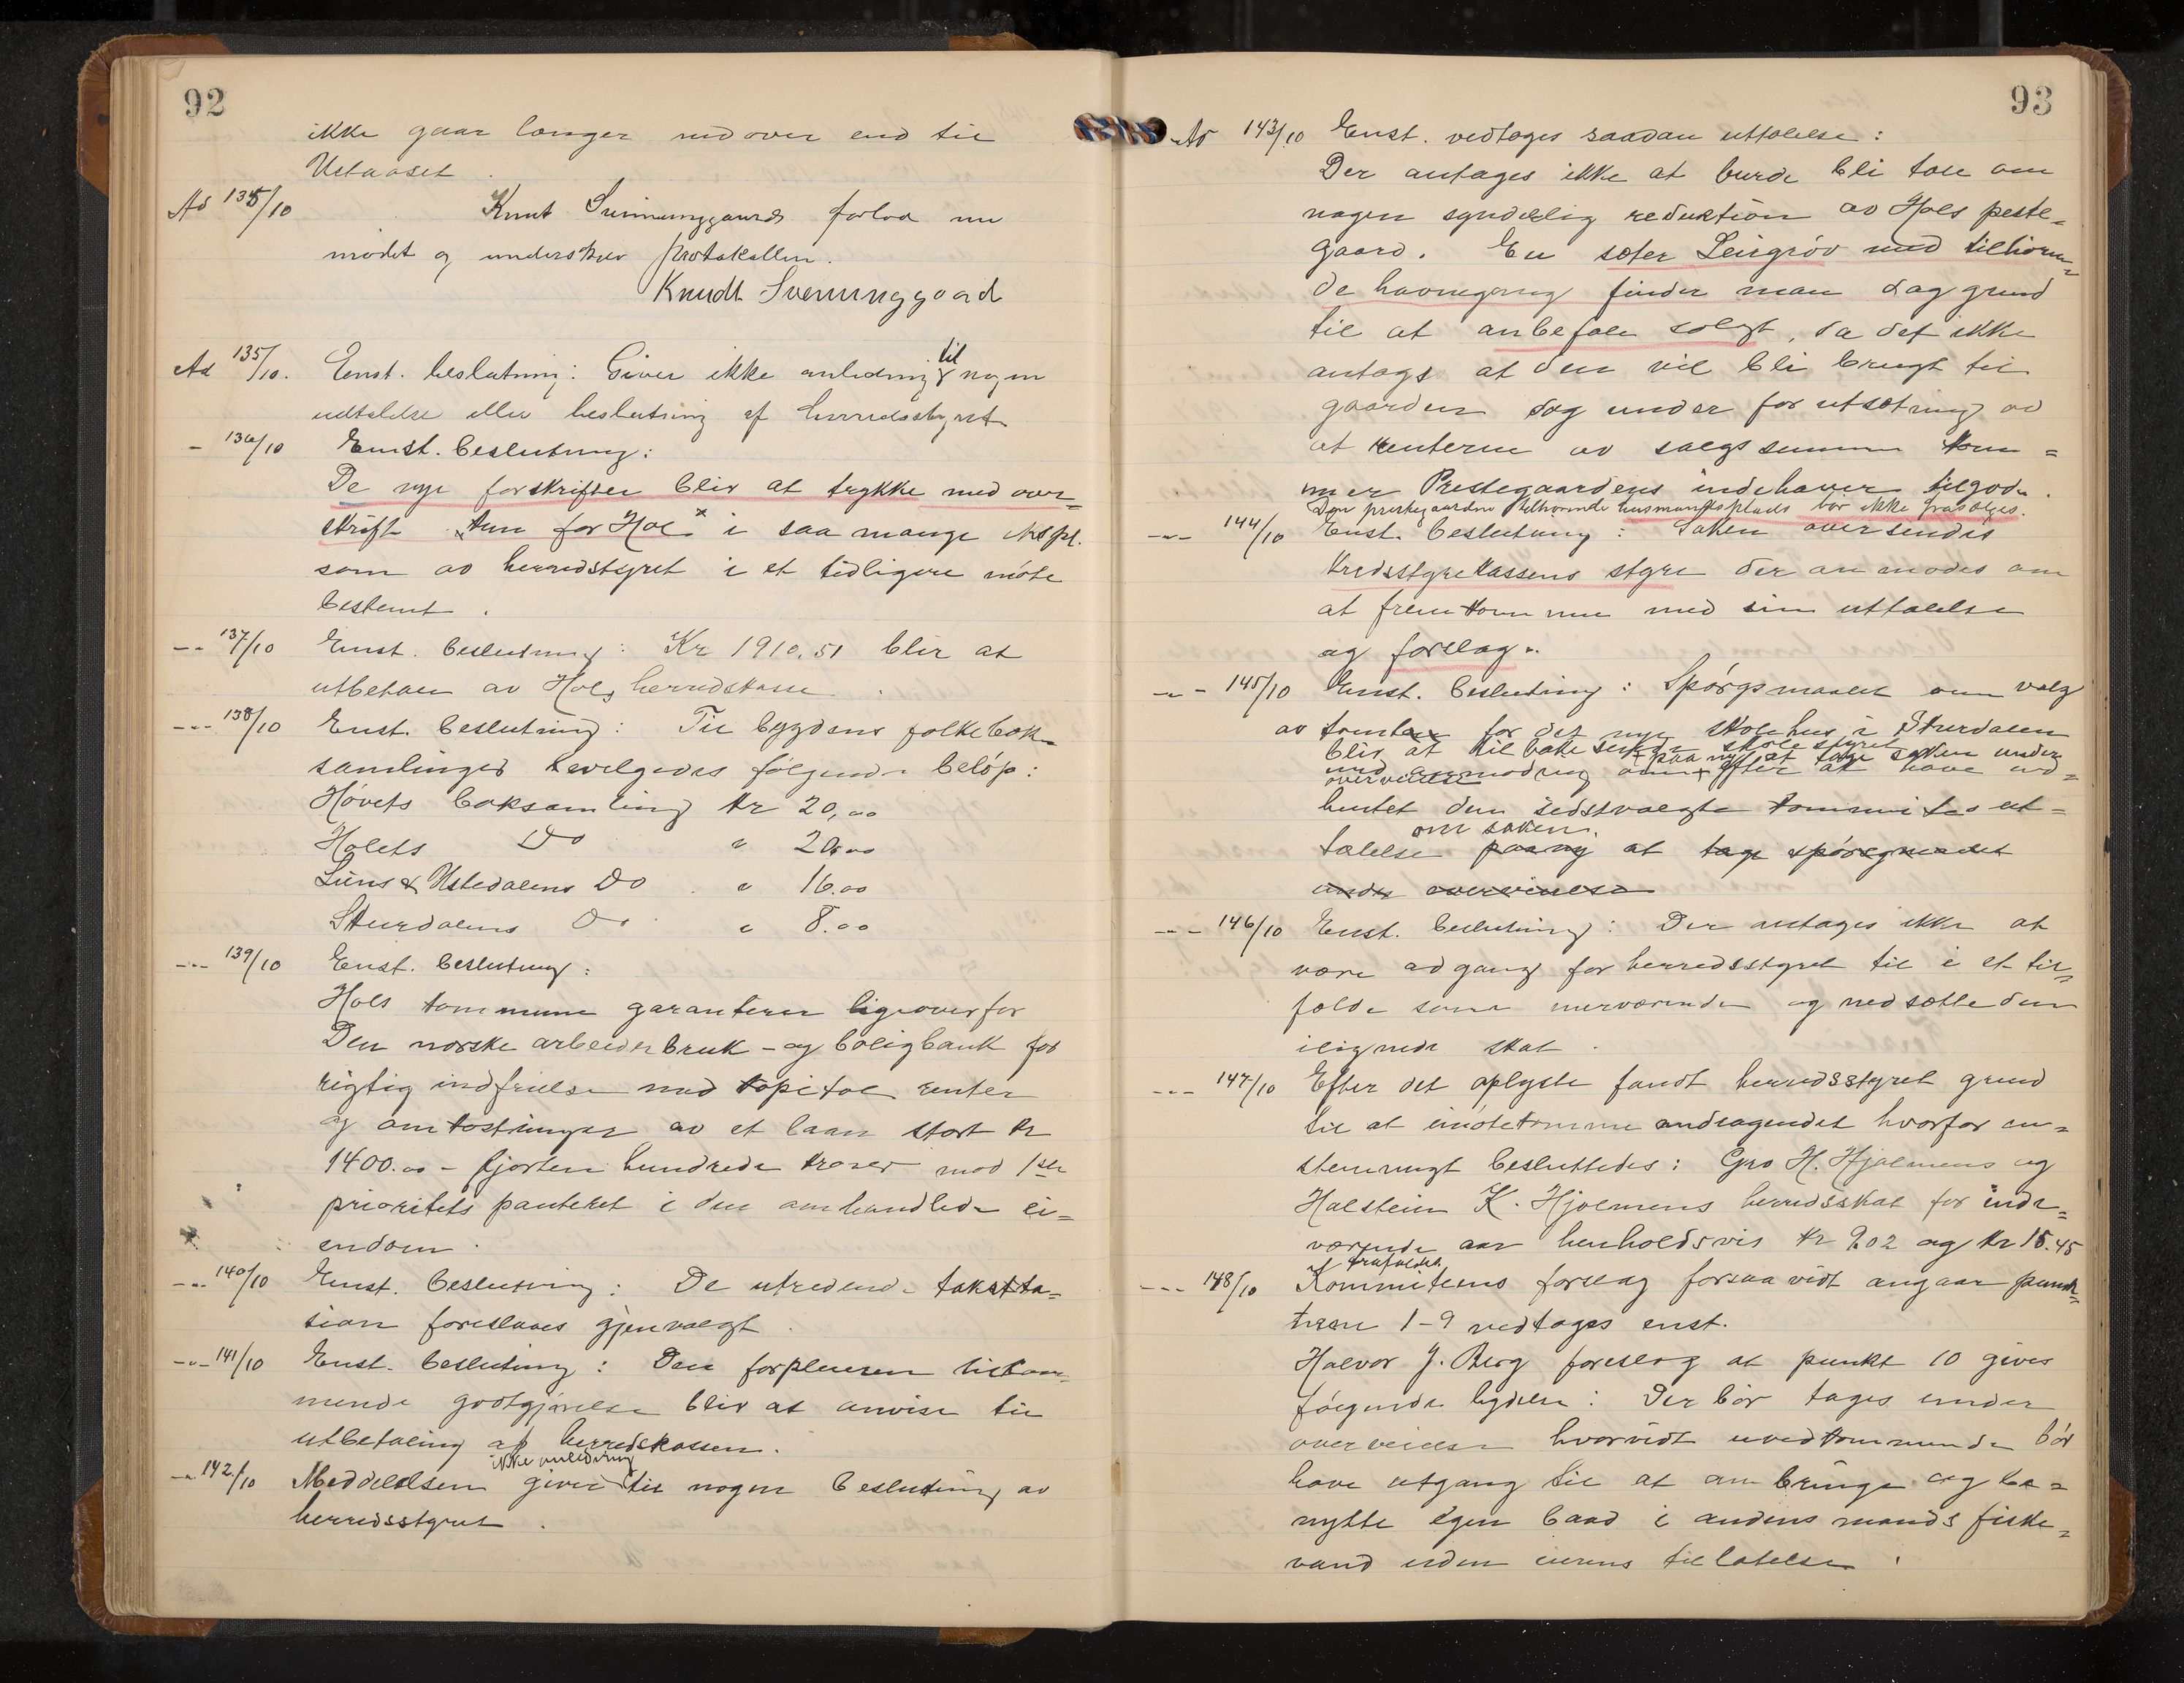 92
ikke gaar længer nedover end til
Ustaoset.
Ad 135/10 Knut Sveinunggaard forlod nu
mødet og underskrev protokollen.
Knudt Sveinunggaard
Ad 135/10. Enst. beslutning: Giver ikke anledning til nogen
udtalelse eller beslutning af herredsstyret
- 136/10 Enst. beslutning:
De nye forskrifter blir at trykke med over=
skrift "kun for Hol" i saa mange ekspl.
som av herredstyret i et tidligere møte
bestemt.
--- 137/10 Enst. beslutning: Kr 1910.51 blir at
utbetale av Hols herredskasse.
--- 138/10 Enst. beslutning: Til bygdens folkebok=
samlinger bevilgedes følgende beløp:
Høvets boksamling kr 20,00
Holets Do " 20.00
Liens & Ustedalens Do " 16.00
Skurdalens Do " 8.00
--- 139/10 Enst. beslutning:
Hols kommune garanterer ligeoverfor
Den norske arbeiderbruk- og boligbank for
rigtig indfrielse med kapital renter
og omkostninger av et laan stort kr
1400.00 - fjorten hundrede kroner mod 1ste
prioritets panteret i den omhandlede ei=
endom.
--- 140/10 Enst. beslutning: De utredende takstta=
sion foreslaaes gjenvalgt.
--- 141/10 Enst. beslutning: Den forpleieren tilkom=
mende godtgjørelse blir at anvise til
utbetaling af herredskassen.
ikke anledning
--- 142/10 Meddelelsen giver til nogen beslutning av
herredsstyret.
93
Ad 143/10 Enst. vedtages saadan uttalelse:
Der antages ikke at burde bli tale om
nogen synderlig reduktion av Hols preste=
gaard. En sæter Leirgrøv med tilhøren=
de havnegang finder man dog grund
til at anbefale solgt, da det ikke
antages at den vil bli brugt til
gaarden dog under forutsætning av
at renterne av salgssummen kom=
mer Prestegaardens indehaver tilgode.
Den prestegaarden tilhørende husmandsplads bør ikke frasælges.
--- 144/10 Enst. beslutning: Saken oversendes
kredsstyrekassens styre der anmodes om
at fremkomme med sin uttalelse
og forslag.
--- 145/10 Enst. beslutning: Spørgsmaalet om valg
av tomten for det nye skolehus i Skurdalen
blir at tilbakesende skolestyret
med anmodning om paa ny at tage saken under
overveielse efter at have ind=
hentet den sidstvalgte kommites ut=
om saken.
talelse paa ny at tage spørgsmaalet
under overveielse
--- 146/10 Enst. beslutning: Der antages ikke at
være adgang for herredsstyret til i et til=
fælde som nærværende og nedsætte den
ilignede skat.
--- 147/10 Efter det oplyste fandt herredsstyret grund
til at imøtekomme andragendet hvorfor en=
stemmigt besluttedes: Gro H. Hjælmens og
Halstein K. Hjælmens herredsskat for inde=
værende aar henholdsvis kr 9.02 og kr 15.45
frafaldes.
--- 148/10 Kommiteens forslag forsaavidt angaar punk=
terne 1-9 vedtages enst.
Halvor J. Berg foreslog at punkt 10 gives
følgende lydelse: Der bør tages under
overveielse hvorvidt uvedkommende bør
have adgang til at anbringe og be=
nytte egen baad i andens mands fiske=
vand uden eierens tilladelse.